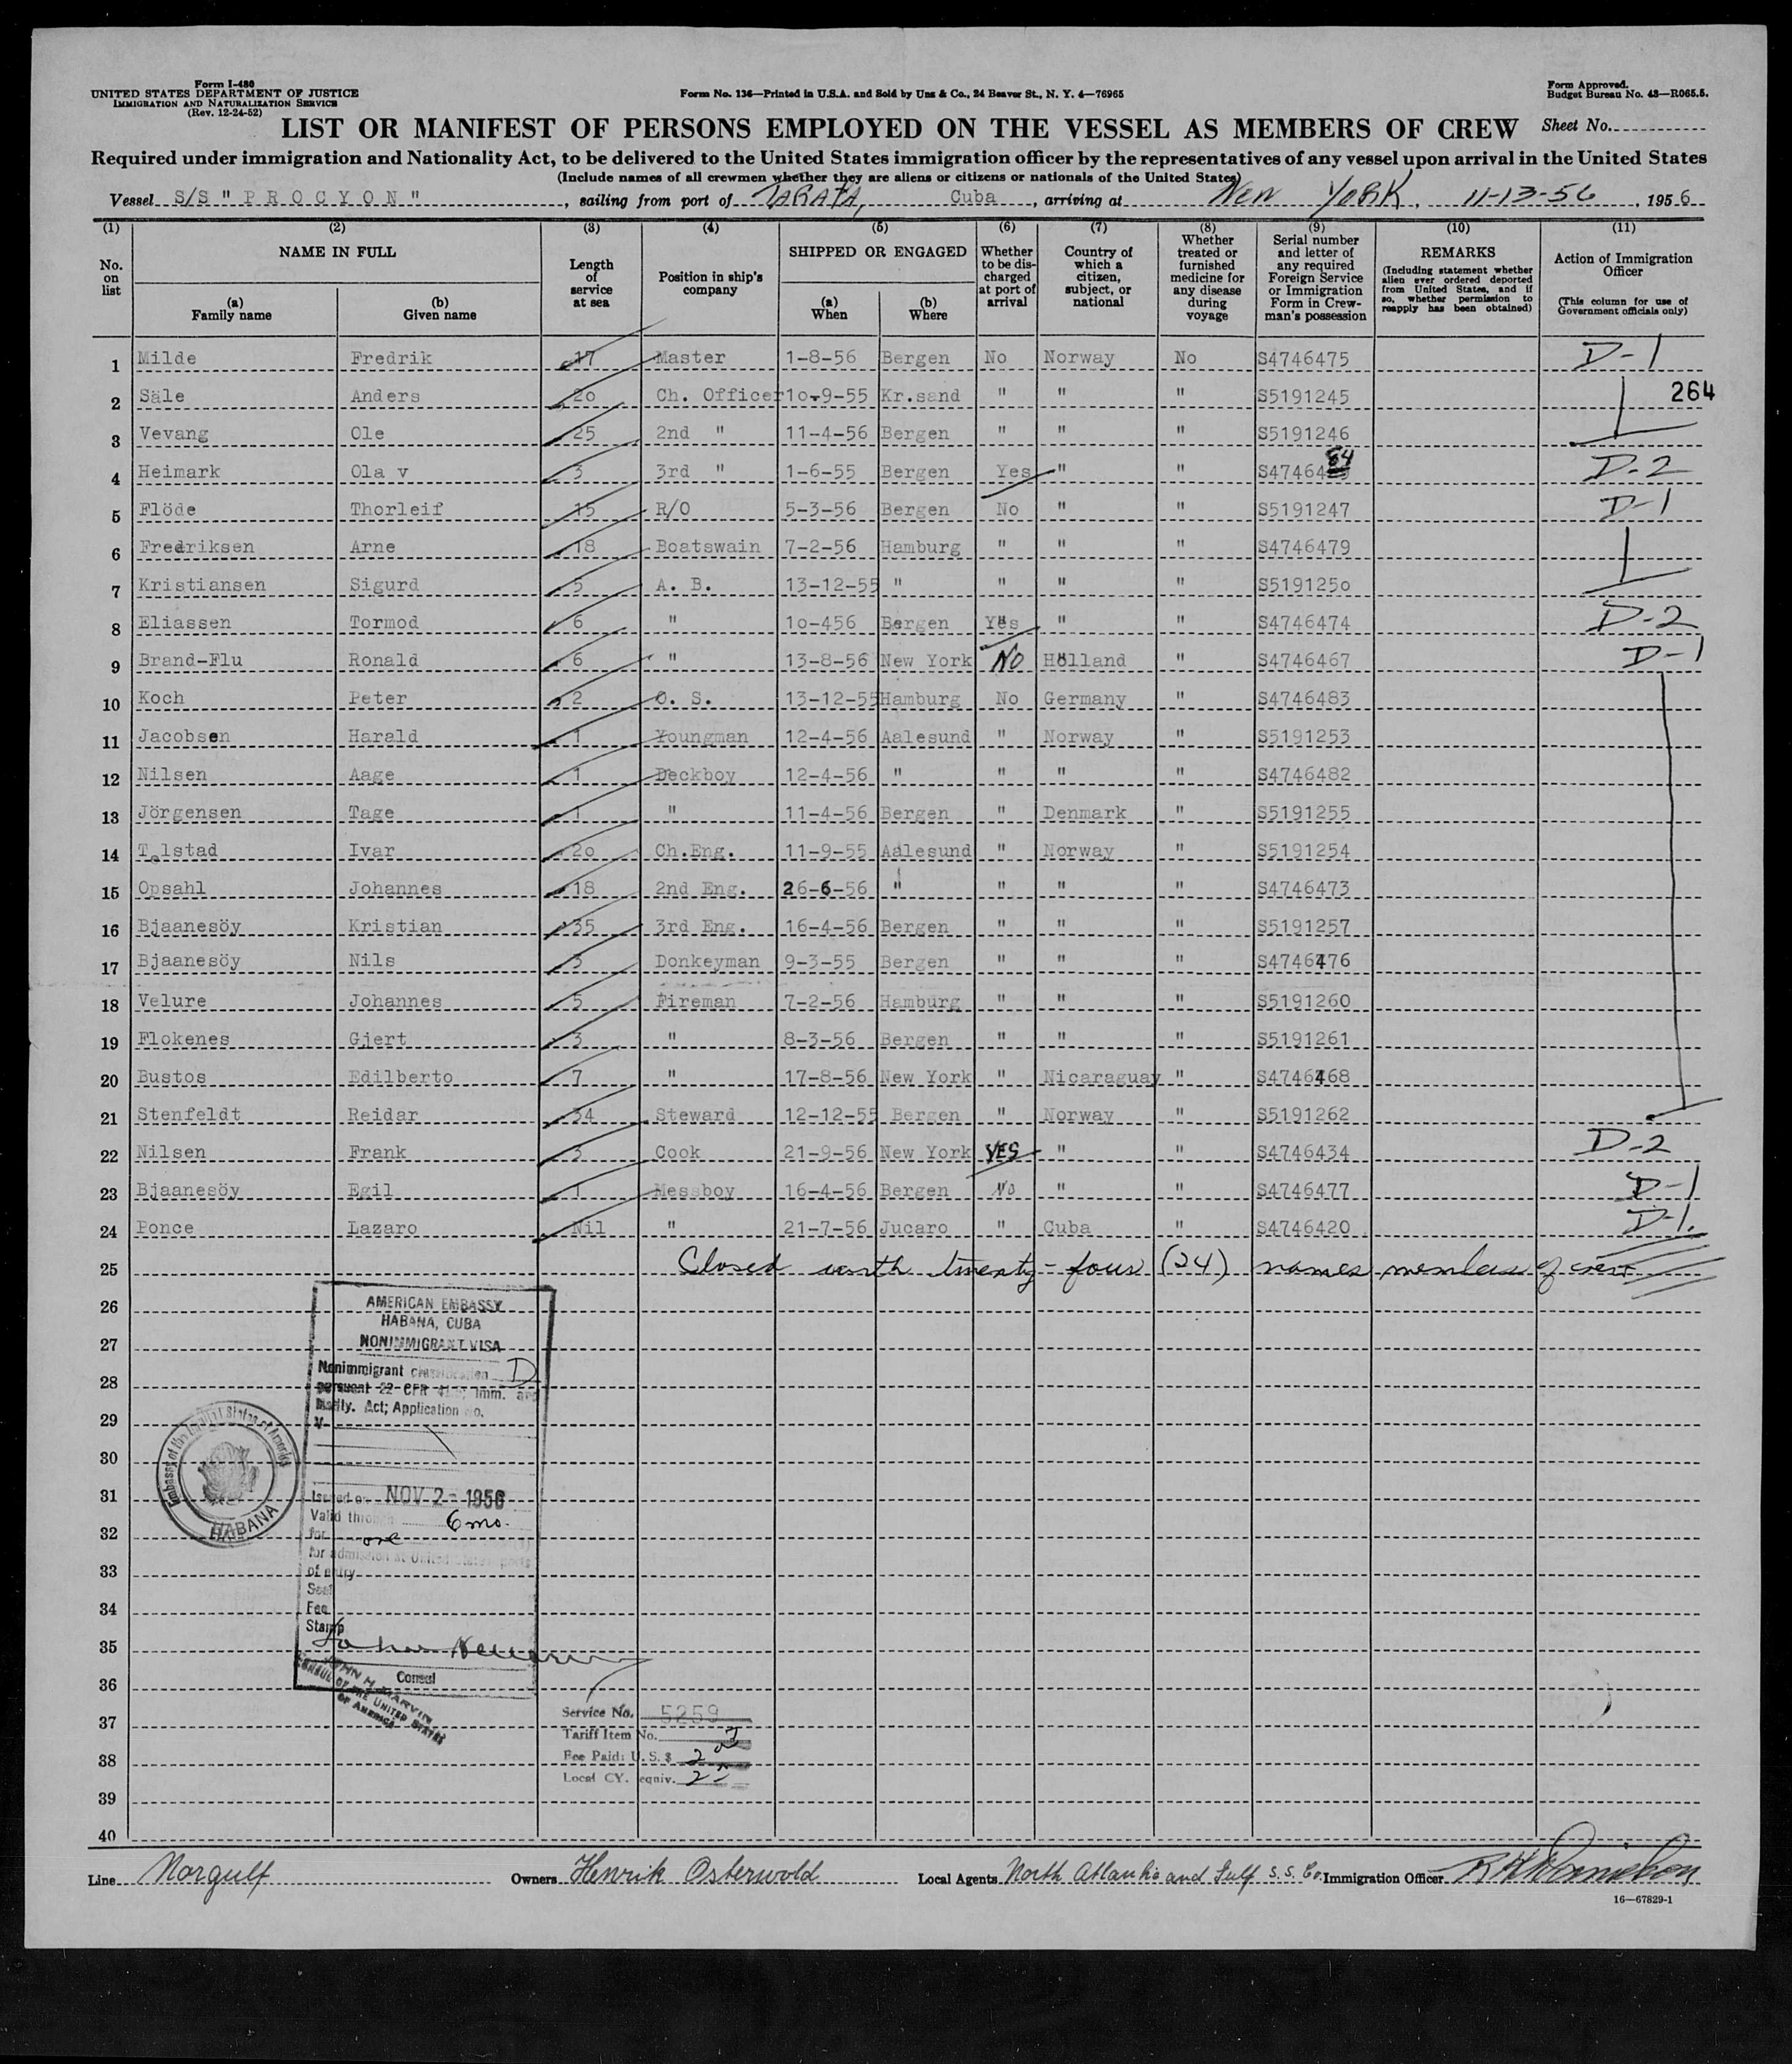 Form I-480
UNITED STATES DEPARTMENT OF JUSTICE
IMMIGRATION AND NATURALIZATION SERVICE
(Rev. 12-24-52)
Form No. 136—Printed in U.S.A. and Sold by Unz & Co., 24 Beaver St., N. Y. 4—76965
Form Approved.
Budget Bureau No. 43—R065.5.
LIST OR MANIFEST OF PERSONS EMPLOYED ON THE VESSEL AS MEMBERS OF CREW Sheet No.
Required under immigration and Nationality Act, to be delivered to the United States immigration officer by the representatives of any vessel upon arrival in the United States
(Include names of all crewmen whether they are aliens or citizens or nationals of the United States)
Vessel S/S "PROCYON", sailing from port of TARAFA, Cuba, arriving at New YORK, 11-13-56, 1956
(1) (2) (3) (4) (5) (6) (7) (8) (9) (10) (11)
No. on list
NAME IN FULL
(a) Family name
(b) Given name
Length of service at sea
Position in ship's company
SHIPPED OR ENGAGED
(a) When
(b) Where
Whether to be discharged at port of arrival
Country of which a citizen, subject, or national
Whether treated or furnished medicine for any disease during voyage
Serial number and letter of any required Foreign Service or Immigration Form in Crewman's possession
REMARKS
(Including statement whether alien ever ordered deported from United States, and if so, whether permission to reapply has been obtained)
Action of Immigration Officer
(This column for use of Government officials only)
1 Milde Fredrik 17 Master 1-8-56 Bergen No Norway No S4746475 D-1
2 Säle Anders 2o Ch. Officer 1o-9-55 Kr.sand " " " S5191245 264
3 Vevang Ole 25 2nd " 11-4-56 Bergen " " " S5191246
4 Heimark Ola v 3 3rd " 1-6-55 Bergen Yes " " S4746484 D-2
5 Flöde Thorleif 15 R/O 5-3-56 Bergen No " " S5191247 D-1
6 Fredriksen Arne 18 Boatswain 7-2-56 Hamburg " " " S4746479
7 Kristiansen Sigurd 5 A. B. 13-12-55 " " " " S519125o
8 Eliassen Tormod 6 " 1o-456 Bergen Yes " " S4746474 D-2
9 Brand-Flu Ronald 6 " 13-8-56 New York NO Holland " S4746467 D-1
10 Koch Peter 2 O. S. 13-12-55 Hamburg No Germany " S4746483
11 Jacobsen Harald 1 Youngman 12-4-56 Aalesund " Norway " S5191253
12 Nilsen Aage 1 Deckboy 12-4-56 " " " " S4746482
13 Jörgensen Tage 1 " 11-4-56 Bergen " Denmark " S5191255
14 Tolstad Ivar 2o Ch.Eng. 11-9-55 Aalesund " Norway " S5191254
15 Opsahl Johannes 18 2nd Eng. 26-6-56 " " " " S4746473
16 Bjaanesöy Kristian 35 3rd Eng. 16-4-56 Bergen " " " S5191257
17 Bjaanesöy Nils 3 Donkeyman 9-3-55 Bergen " " " S4746476
18 Velure Johannes 5 Fireman 7-2-56 Hamburg " " " S5191260
19 Flokenes Gjert 3 " 8-3-56 Bergen " " " S5191261
20 Bustos Edilberto 7 " 17-8-56 New York " Nicaraguay " S4746468
21 Stenfeldt Reidar 34 Steward 12-12-55 Bergen " Norway " S5191262
22 Nilsen Frank 3 Cook 21-9-56 New York YES " " S4746434 D-2
23 Bjaanesöy Egil 1 Messboy 16-4-56 Bergen No " " S4746477 D-1
24 Ponce Lazaro Nil " 21-7-56 Jucaro " Cuba " S4746420 D-1.
25 Closed with twenty-four (24) names members of crew
26
27
28
29
30
31
32
33
34
35
36
37
38
39
40
AMERICAN EMBASSY
HABANA, CUBA
NONIMMIGRANT VISA
Nonimmigrant classification D
pursuant 22 CFR Imm. and
Natlty. Act; Application No.
V
Issued on NOV 2 - 1956
Valid through 6 mo.
for one
for admission at United States ports
of entry.
Seal
Fee
Stamp
Consul
JOHN H. MARVIN
CONSUL OF THE UNITED STATES
OF AMERICA
Embassy of the United States of America
HABANA
Service No. 5259
Tariff Item No.
Fee Paid: U. S. $ 2
Local CY. equiv. 2
Line Norgulf Owners Henrik Osterwold Local Agents North Atlantic and Gulf S.S. Co. Immigration Officer
16—67829-1